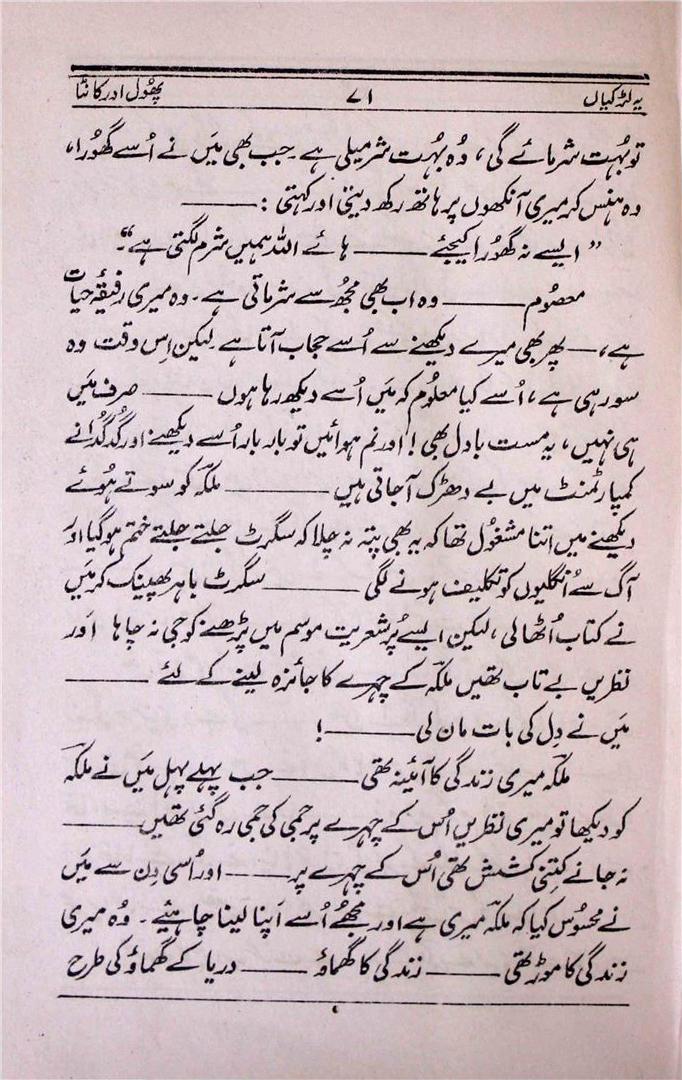 یہ لڑکیاں ۷۱ پھُول اور کانٹا
تو بہُت شرمائے گی، وُہ بہُت شرمیلی ہے۔ جب بھی مَیں نے اُسے گھُورا،
وہ ہنس کر میری آنکھوں پر ہاتھ رکھ دیتی اور کہتی :———
" ایسے نہ گھُورا کیجئے ——— ہائے اللہ ہمیں شرم لگتی ہے"۔
معصُوم ——— وہ اب بھی مجھُ سے شرماتی ہے۔ وہ میری رفیقۂ حیات
ہے،— پھر بھی میرے دیکھنے سے اُسے حجاب آتا ہے لیکن اِس وقت وہ
سو رہی ہے، اُسے کیا معلوُم کہ مَیں اُسے دیکھ رہا ہوں ——— صرف مَیں
ہی نہیں، یہ مست بادل بھی! اور نم ہوائیں تو بار بار اُسے دیکھنے اور گُدگُدانے
کمپارٹمنٹ میں بے دھڑک آ جاتی ہیں ——— ملکہؔ کو سوتے ہُوئے
دیکھنے میں اِتنا مشغُول تھا کہ یہ بھی پتہ نہ چلا کہ سگرٹ جلتے جلتے ختم ہو گیا اور
آگ سے اُنگلیوں کو تکلیف ہونے لگی ——— سگرٹ باہر پھینک کر مَیں
نے کتاب اُٹھا لی، لیکن ایسے پُر شعریت موسم میں پڑھنے کو جی نہ چاہا اَور
نظریں بے تاب تھیں ملکہؔ کے چہرے کا جائزہ لینے کے لئے ———
مَیں نے دِل کی بات مان لی ———!
ملکہؔ میری زندگی کا آئینہ تھی ——— جب پہلے پہل مَیں نے ملکہؔ
کو دیکھا تو میری نظریں اُس کے چہرے پر جمی کی جمی رہ گئی تھیں ———
نہ جانے کِتنی کشش تھی اُس کے چہرے پر ——— اور اُسی دِن سے مَیں
نے محسُوس کیا کہ ملکہؔ میری ہے اور مجھُے اُسے اَپنا لینا چاہیئے۔ وُہ میری
زندگی کا موڑ تھی ——— زندگی کا گھماؤ ——— دریا کے گھماؤ کی طرح